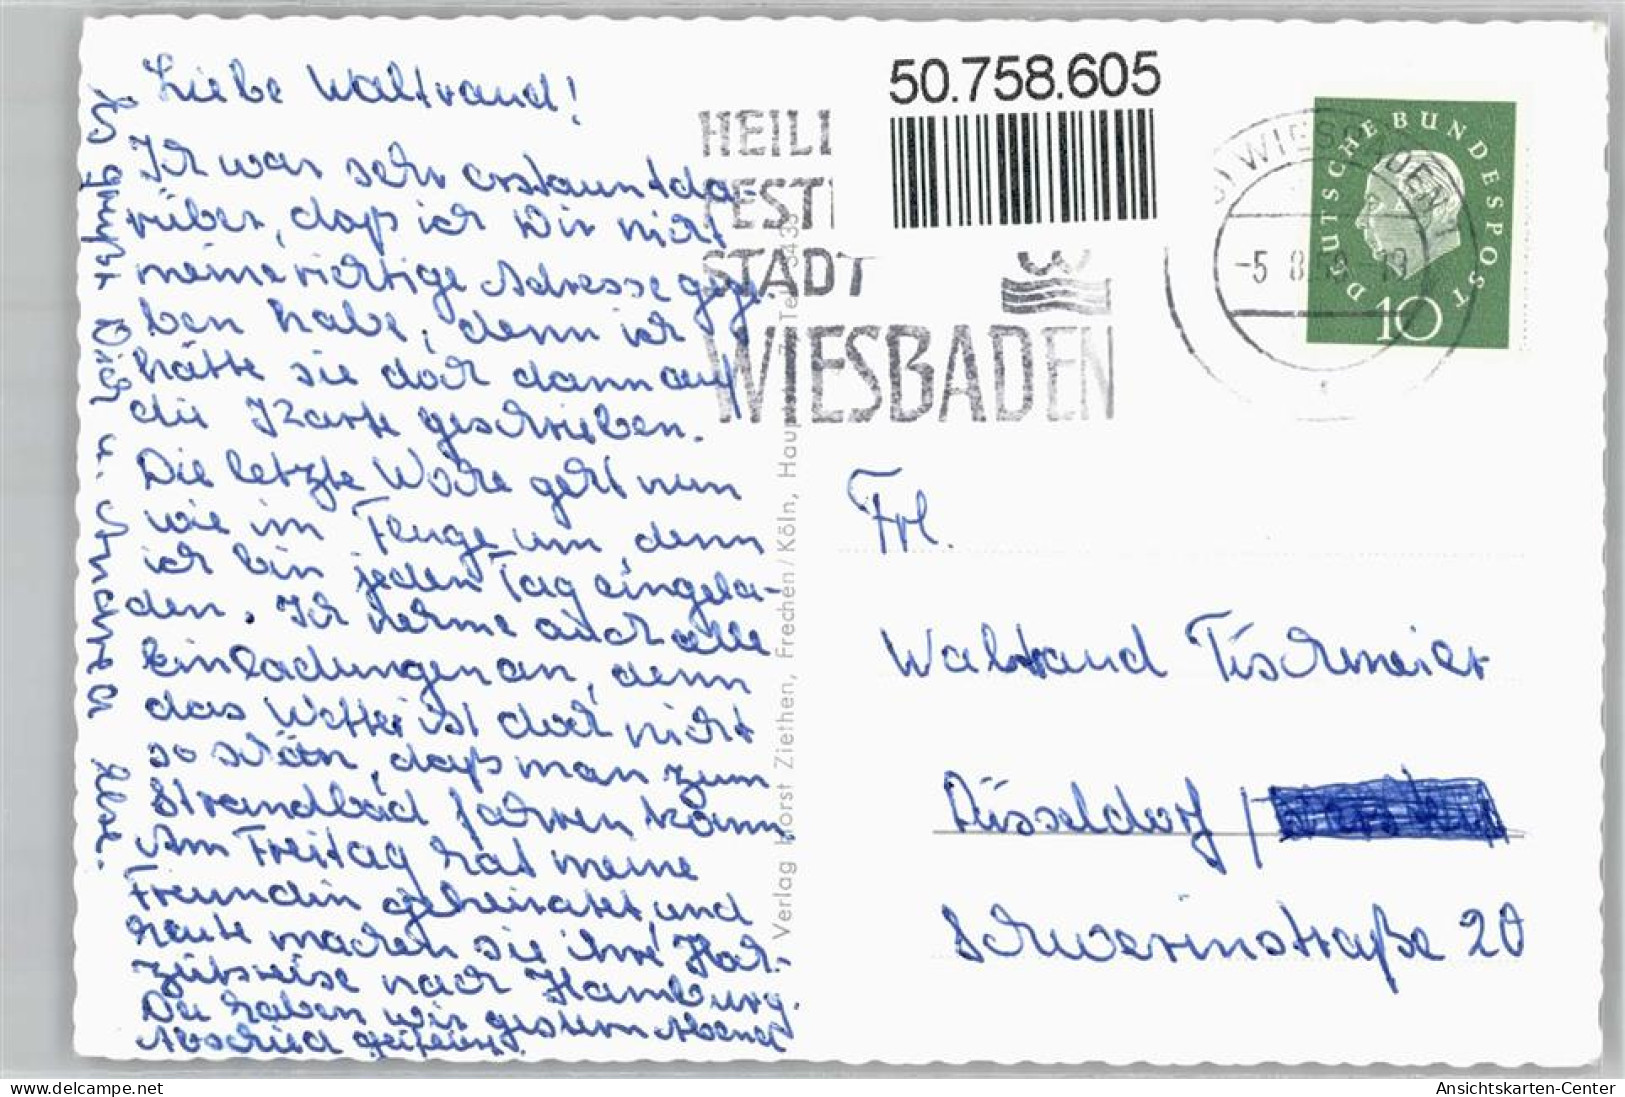 Liebe Waltraud!
Ich war sehr erstaunt da-
rüber, daß ich Dir nicht
meine richtige Adresse gege-
ben habe, denn ich
hätte sie doch dann auf
die Karte geschrieben.
Die letzte Woche geht nun
wie im Fluge um, denn
ich bin jeden Tag eingela-
den. Ich nehme auch alle
Einladungen an, denn
das Wetter ist doch nicht
so schön, daß man zum
Strandbad fahren kann.
Am Freitag hat meine
Freundin geheiratet, und
heute machen sie ihre Hoch-
zeitsreise nach Hamburg.
Da haben wir gestern Abend
Abschied gefeiert.
Es grüßt Dich u.
Else.
Verlag Horst Ziethen, Frechen/Köln, Hauptstraße
50.758.605
HEIL
FEST
STADT
WIESBADEN
WIESBADEN
-5 8
-19
DEUTSCHE BUNDESPOST
10
Frl.
Waltraud Tischmeier
Düsseldorf /
Schwerinstraße 20
Ansichtskarten-Center